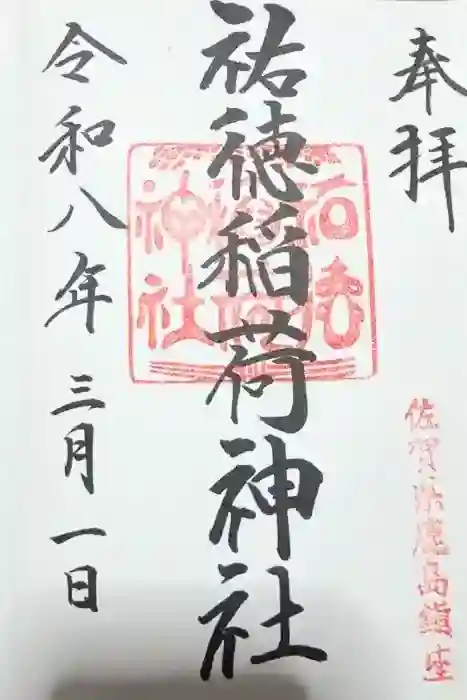 奉拝
佐賀県鹿島鎮座
祐徳稲荷神社
祐徳
稲荷
神社
令和八年三月一日